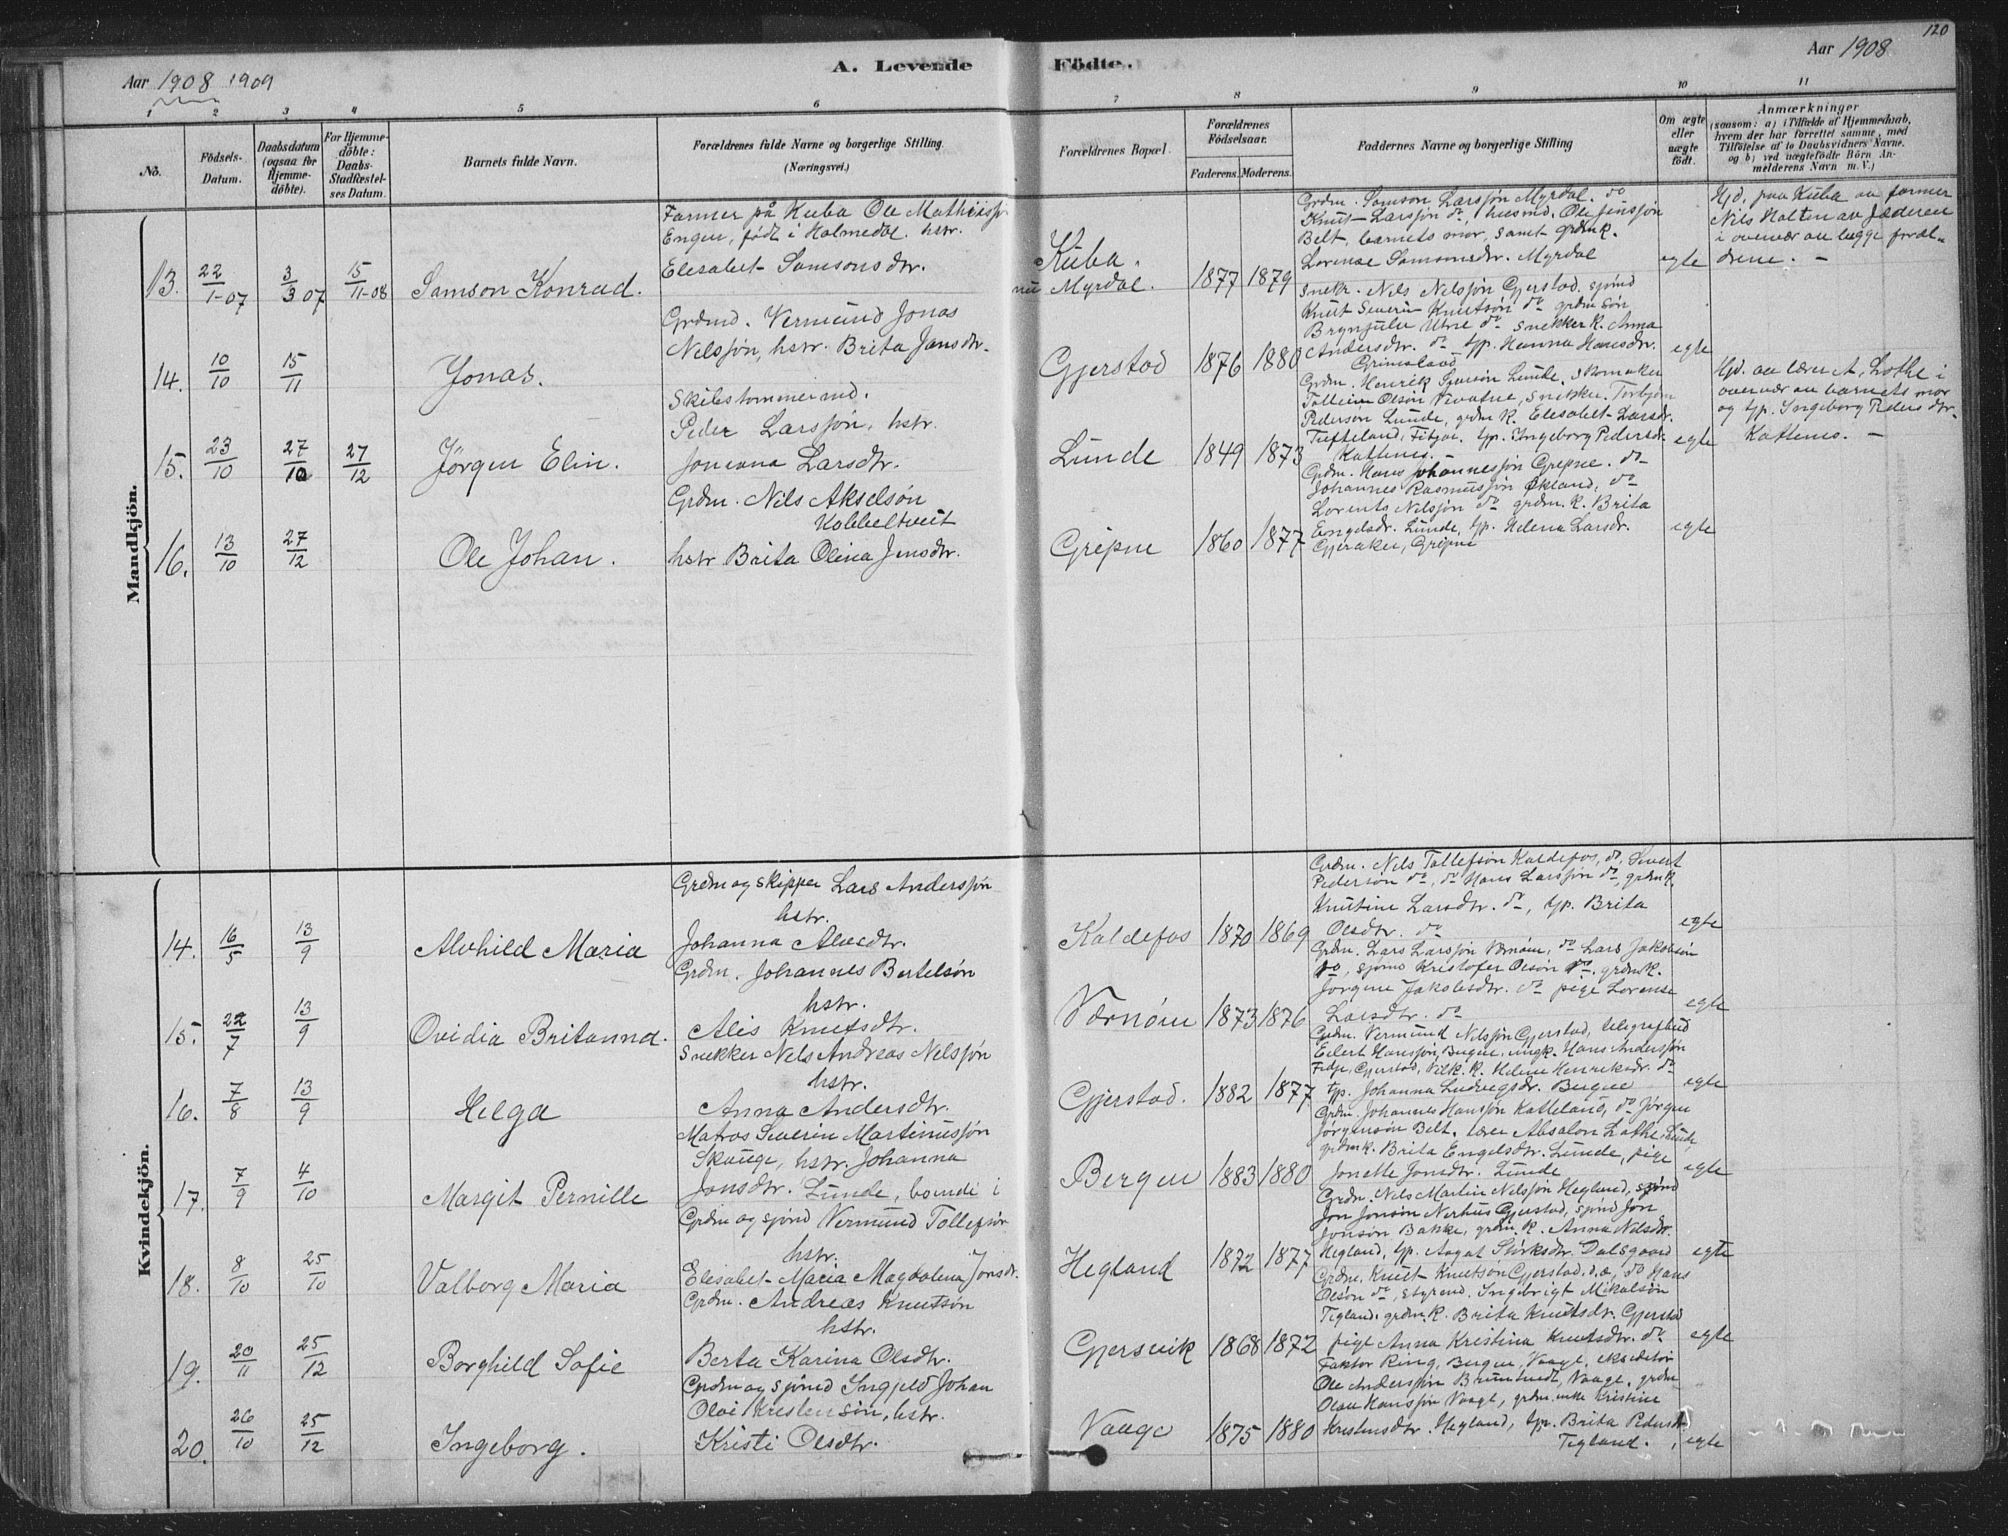 120
Aar 1908 1909
A. Levende Födte.
Aar 1908
1 2 3 4 5 6 7 8 9 10 11
No.
Födsels-
Datum.
Daabsdatum
(ogsaa for
Hjemme-
döbte).
For Hjemme-
döbte:
Daabs-
Stadfæstel-
ses Datum.
Barnets fulde Navn.
Forældrenes fulde Navne og borgerlige Stilling.
(Næringsvei.)
Forældrenes Bopæl.
Forældrenes
Födselsaar.
Faderens. Moderens.
Faddernes Navne og borgerlige Stilling
Om ægte
eller
uægte
födt.
Anmærkninger
(saasom: a) i Tilfælde af Hjemmedaab,
hvem der har forrettet samme, med
Tilföielse af to Daabsvidners Navne.
og b) ved uægtefödte Börn An-
melderens Navn m. V.)
Mandkjön.
13.
22/1-07
3/3 07
15/11-08
Samson Konrad.
Farmer på Kuba Ole Mathissjø
Engen, født i Holmedal. hstr.
Elesabet Samsonsdtr.
Kuba.
nu Myrdal.
1877 1879
Grdm. Samson Larssjøn Myrdal. do
Knut Larssjøn do, husmd. Ole Jenssjøn
Belt, barnets mor, samt grdmk.
Lorense Samsonsdtr. Myrdal
egte
Hjd. paa Kuba av farmer
Nils Holten av Jæderen
i overvær av begge foræl-
drene. -
14.
10/10
15/11
Jonas.
Grdmd. Vermund Jonas
Nelssjøn, hstr. Brita Jansdtr.
Gjerstad
1876 1880
Snekr. Nels Nelssjøn Gjerstad, sjømd
Knut Severin Knutsøn do grdm søn
Brynjulv Utne do snekker k. Anna
Andersdtr. do tjp. Hanna Hansdtr.
Grimsland
egte
15.
23/10
27/10
27/12
Jørgen Elin.
Skibstommermd.
Peder Larssjøn, hstr.
Joneana Larsdtr.
Lunde
1849 1873
Grdm. Henrik Larsøn Lunde, skomaker
Tolleiv Olsøn Vevatne, snekker Torbjørn
Pedersøn Lunde, grdm k. Elesabet Larsdr.
Tufteland, Fitjar. tjp. Ingeborg Pedersdr.
Kattenes. -
egte
Hjd. av lærer A. Lothe i
overvær av barnets mor
og tjp. Ingeborg Pedersdtr.
Kattenes. -
16.
13/10
27/12
Ole Johan.
Grdm. Nils Akselsøn
Hobbeltveit
hstr Brita Olina Jensdtr.
Grepne
1860 1877
Grdm. Hans Johannessjøn Grepne. do
Johannes Rasmussjøn Økland, do
Lorents Nelsjøn do grdm.k. Brita
Engelsdr. Lunde, tjp. Helena Larsdr.
Gjeraker, Grepne
egte
Kvindekjön.
14.
16/5
13/9
Alvhild Maria
Grdm og skipper Lars Anderssjøn
hstr.
Johanna Alvesdtr.
Kaldefos
1870 1869
Grdm. Nels Tollefsøn Kaldefos, do, Sivert
Pedersøn do, do Hans Larssjøn do, grdmk.
Knutine Larsdtr. do, tjp. Brita
Olsdtr. do
egte
15.
22/7
13/9
Ovidia Britanna.
Grdm. Johannes Bertelsøn
hstr.
Alis Knutsdtr.
Værnøen
1873 1876
Grdm. Lars Larssjøn Værnøen, do Lars Jakobsøn
do, sjømd Kristofer Olsøn do. grdmk.
Jørgine Jakobsdtr. do pige Lorense
Larsdtr. do
egte
16.
7/8
13/9
Helga
Snekker Nels Andreas Nelssjøn
hstr.
Anna Andersdtr.
Gjerstad.
1882 1877
Grdm. Vermund Nelssjøn Gjerstad, telegrafbud
Eilert Hanssjøn, Bergen, ungk. Hans Anderssjøn
Fitje, Gjerstad, Vilk. k. Helene Henriksdr. do
tjp. Johanna Ludvegsdr. Bergen
egte
17.
7/9
4/10
Margit Pernille
Matros Severin Martinussjøn
Skauge, hstr. Johanna
Jonsdtr. Lunde, boende i
Bergen
1883 1880
Grdm. Johannes Hanssjøn Katteland, do Jørgen
Jørgensøn Belt, lærer Absalon Lothe, Lunde,
grdmk. Brita Engelsdtr. Lunde, pige
Jonette Jonsdtr. Lunde
egte
18.
8/10
25/10
Valborg Maria
Grdm og sjømd Vermund Tollefsøn
hstr.
Elesabet Maria Magdalena Jonsdr.
Hegland
1872 1877
Grdm. Nils Martin Nelssjøn Hegland, sjømd
Jon Jonsøn Nerhus Gjerstad, sjømd Jon
Jonsøn Bakke, grdm. k. Anna Nelsdtr.
Hegland, tjp. Aagot Størksdtr. Dalsgaard
egte
19.
20/11
25/12
Borghild Sofie
Grdm. Andreas Knutsøn
hstr.
Berta Karina Olsdtr.
Gjersvik
1868 1872
Grdm. Knut Knutsøn Gjerstad d.æ., do Hans
Olsøn do, styrmd. Ingebrigt Mikalsøn
Tigland, grdm.k. Brita Knutsdtr. Gjerstad
pige Anna Kristina Knutsdtr. do
egte
20.
26/10
25/12
Ingeborg.
Grdm og sjømd Ingjeld Johan
Olai Kristensøn, hstr.
Kristi Olsdtr.
Vaage
1875 1880
Faktor Ring, Bergen, Vaage, ekspeditør
Ole Anderssjøn Brummedt, Vaage, grdm
Olav Hanssjøn Vaage, grdm.enke Kristine
Kristensdtr. Hegland, tjp. Brita Pedersdtr
Tigland.
egte